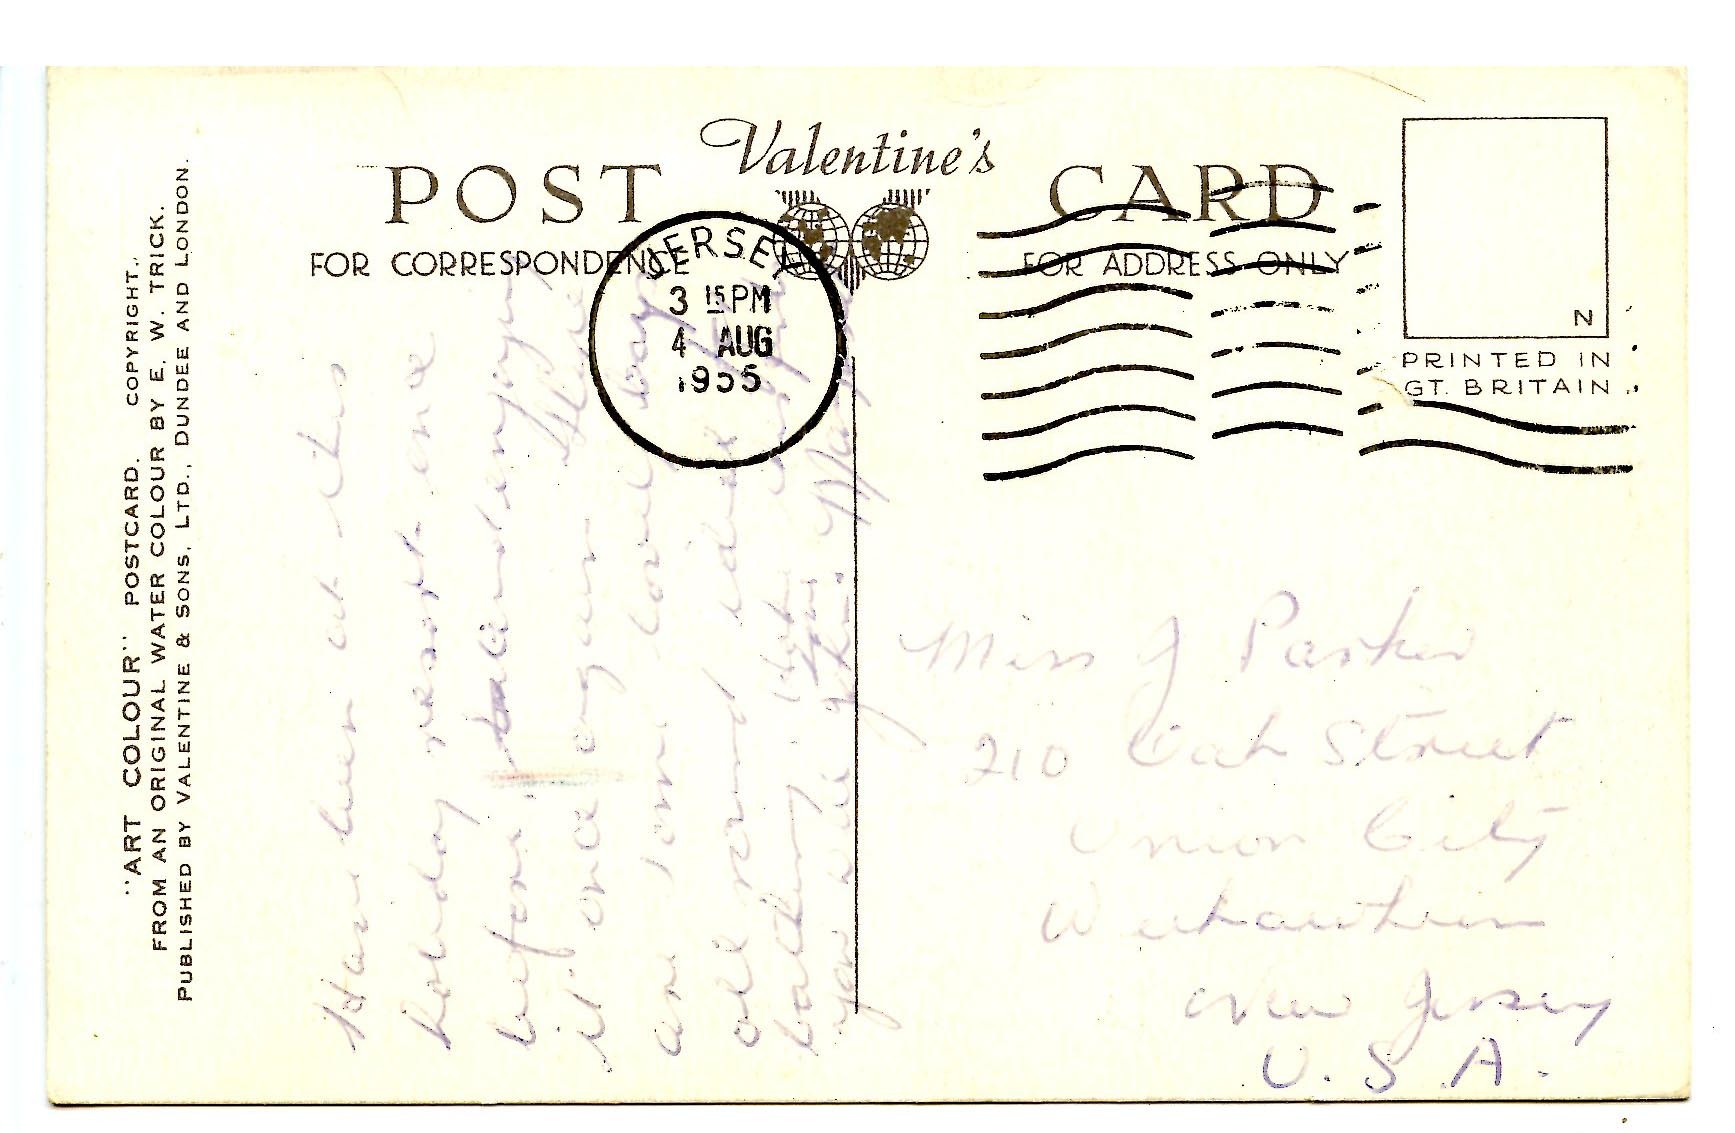 Valentine's
POST CARD
FOR CORRESPONDENCE
FOR ADDRESS ONLY
JERSEY
3 15 PM
4 AUG
1955
N
PRINTED IN
GT. BRITAIN
"ART COLOUR" POSTCARD. COPYRIGHT.
FROM AN ORIGINAL WATER COLOUR BY E. W. TRICK.
PUBLISHED BY VALENTINE & SONS, LTD., DUNDEE AND LONDON.
Have been at this
holiday resort once
before. enjoying
it once again. There
are some lovely bays
all round ideal for
bathing.
you
Miss J Parker
210 Oak Street
Union City
Weehawken
New Jersey
U.S.A.